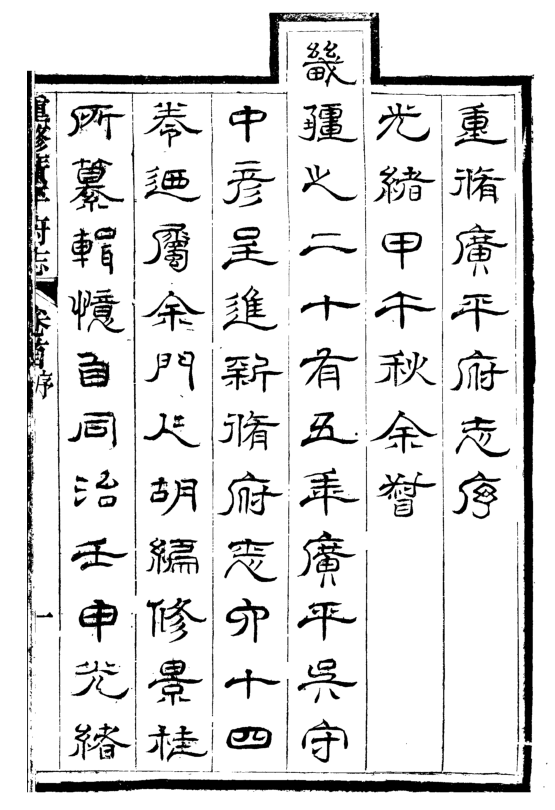 重脩廣平府志序
光緒甲午秋余督
畿疆之二十有五年廣平吳守
中彦呈進新脩府志卯十四
卷迺屬余門人胡編修景桂
所纂輯憶自同治壬申光緒
重修廣平府志 卷首 序 一